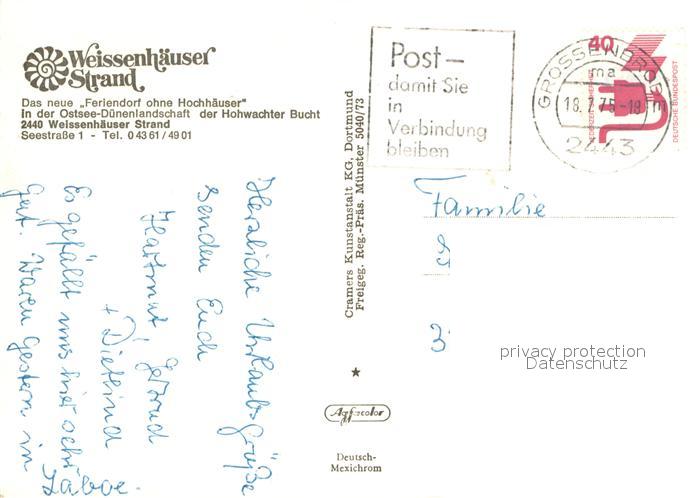 Weissenhäuser
Strand
Das neue „Feriendorf ohne Hochhäuser"
In der Ostsee-Dünenlandschaft der Hohwachter Bucht
2440 Weissenhäuser Strand
Seestraße 1 - Tel. 0 43 61 / 49 01
Herzliche Urlaubsgrüße
senden Euch
Hartmut, Gerund
+ Dietlind
Es gefällt uns hier sehr
gut. Waren gestern in
Laboe.
Cramers Kunstanstalt KG, Dortmund
Freigeg. Reg.-Präs. Münster 5040/73
Agfacolor
Deutsch-
Mexichrom
Post –
damit Sie
in
Verbindung
bleiben
GROSSENBRODE
ma
18.7.75-18
2443
40
DEUTSCHE BUNDESPOST
Familie
S
3
privacy protection
Datenschutz